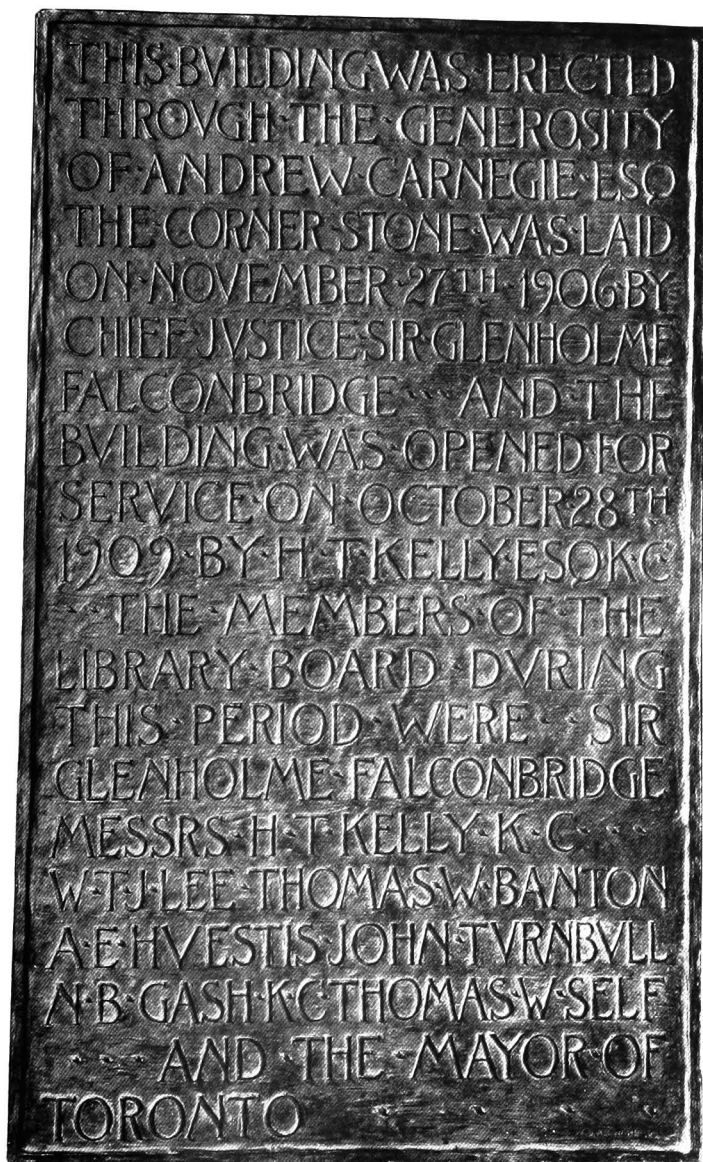 THIS·BVILDING·WAS·ERECTED
THROVGH·THE·GENEROSITY
OF·ANDREW·CARNEGIE·ESQ
THE·CORNER·STONE·WAS·LAID
ON·NOVEMBER·27TH·1906·BY
CHIEF·JVSTICE·SIR·GLENHOLME
FALCONBRIDGE····AND·THE
BVILDING·WAS·OPENED·FOR
SERVICE·ON·OCTOBER·28TH
1909·BY·H·T·KELLY·ESQ·K·C·
··THE·MEMBERS·OF·THE
LIBRARY·BOARD·DVRING
THIS·PERIOD·WERE··SIR
GLENHOLME·FALCONBRIDGE
MESSRS·H·T·KELLY·K·C····
W·T·J·LEE·THOMAS·W·BANTON
A·E·HVESTIS·JOHN·TVRNBVLL
N·B·GASH·K·C·THOMAS·W·SELF
····AND·THE·MAYOR·OF
TORONTO····